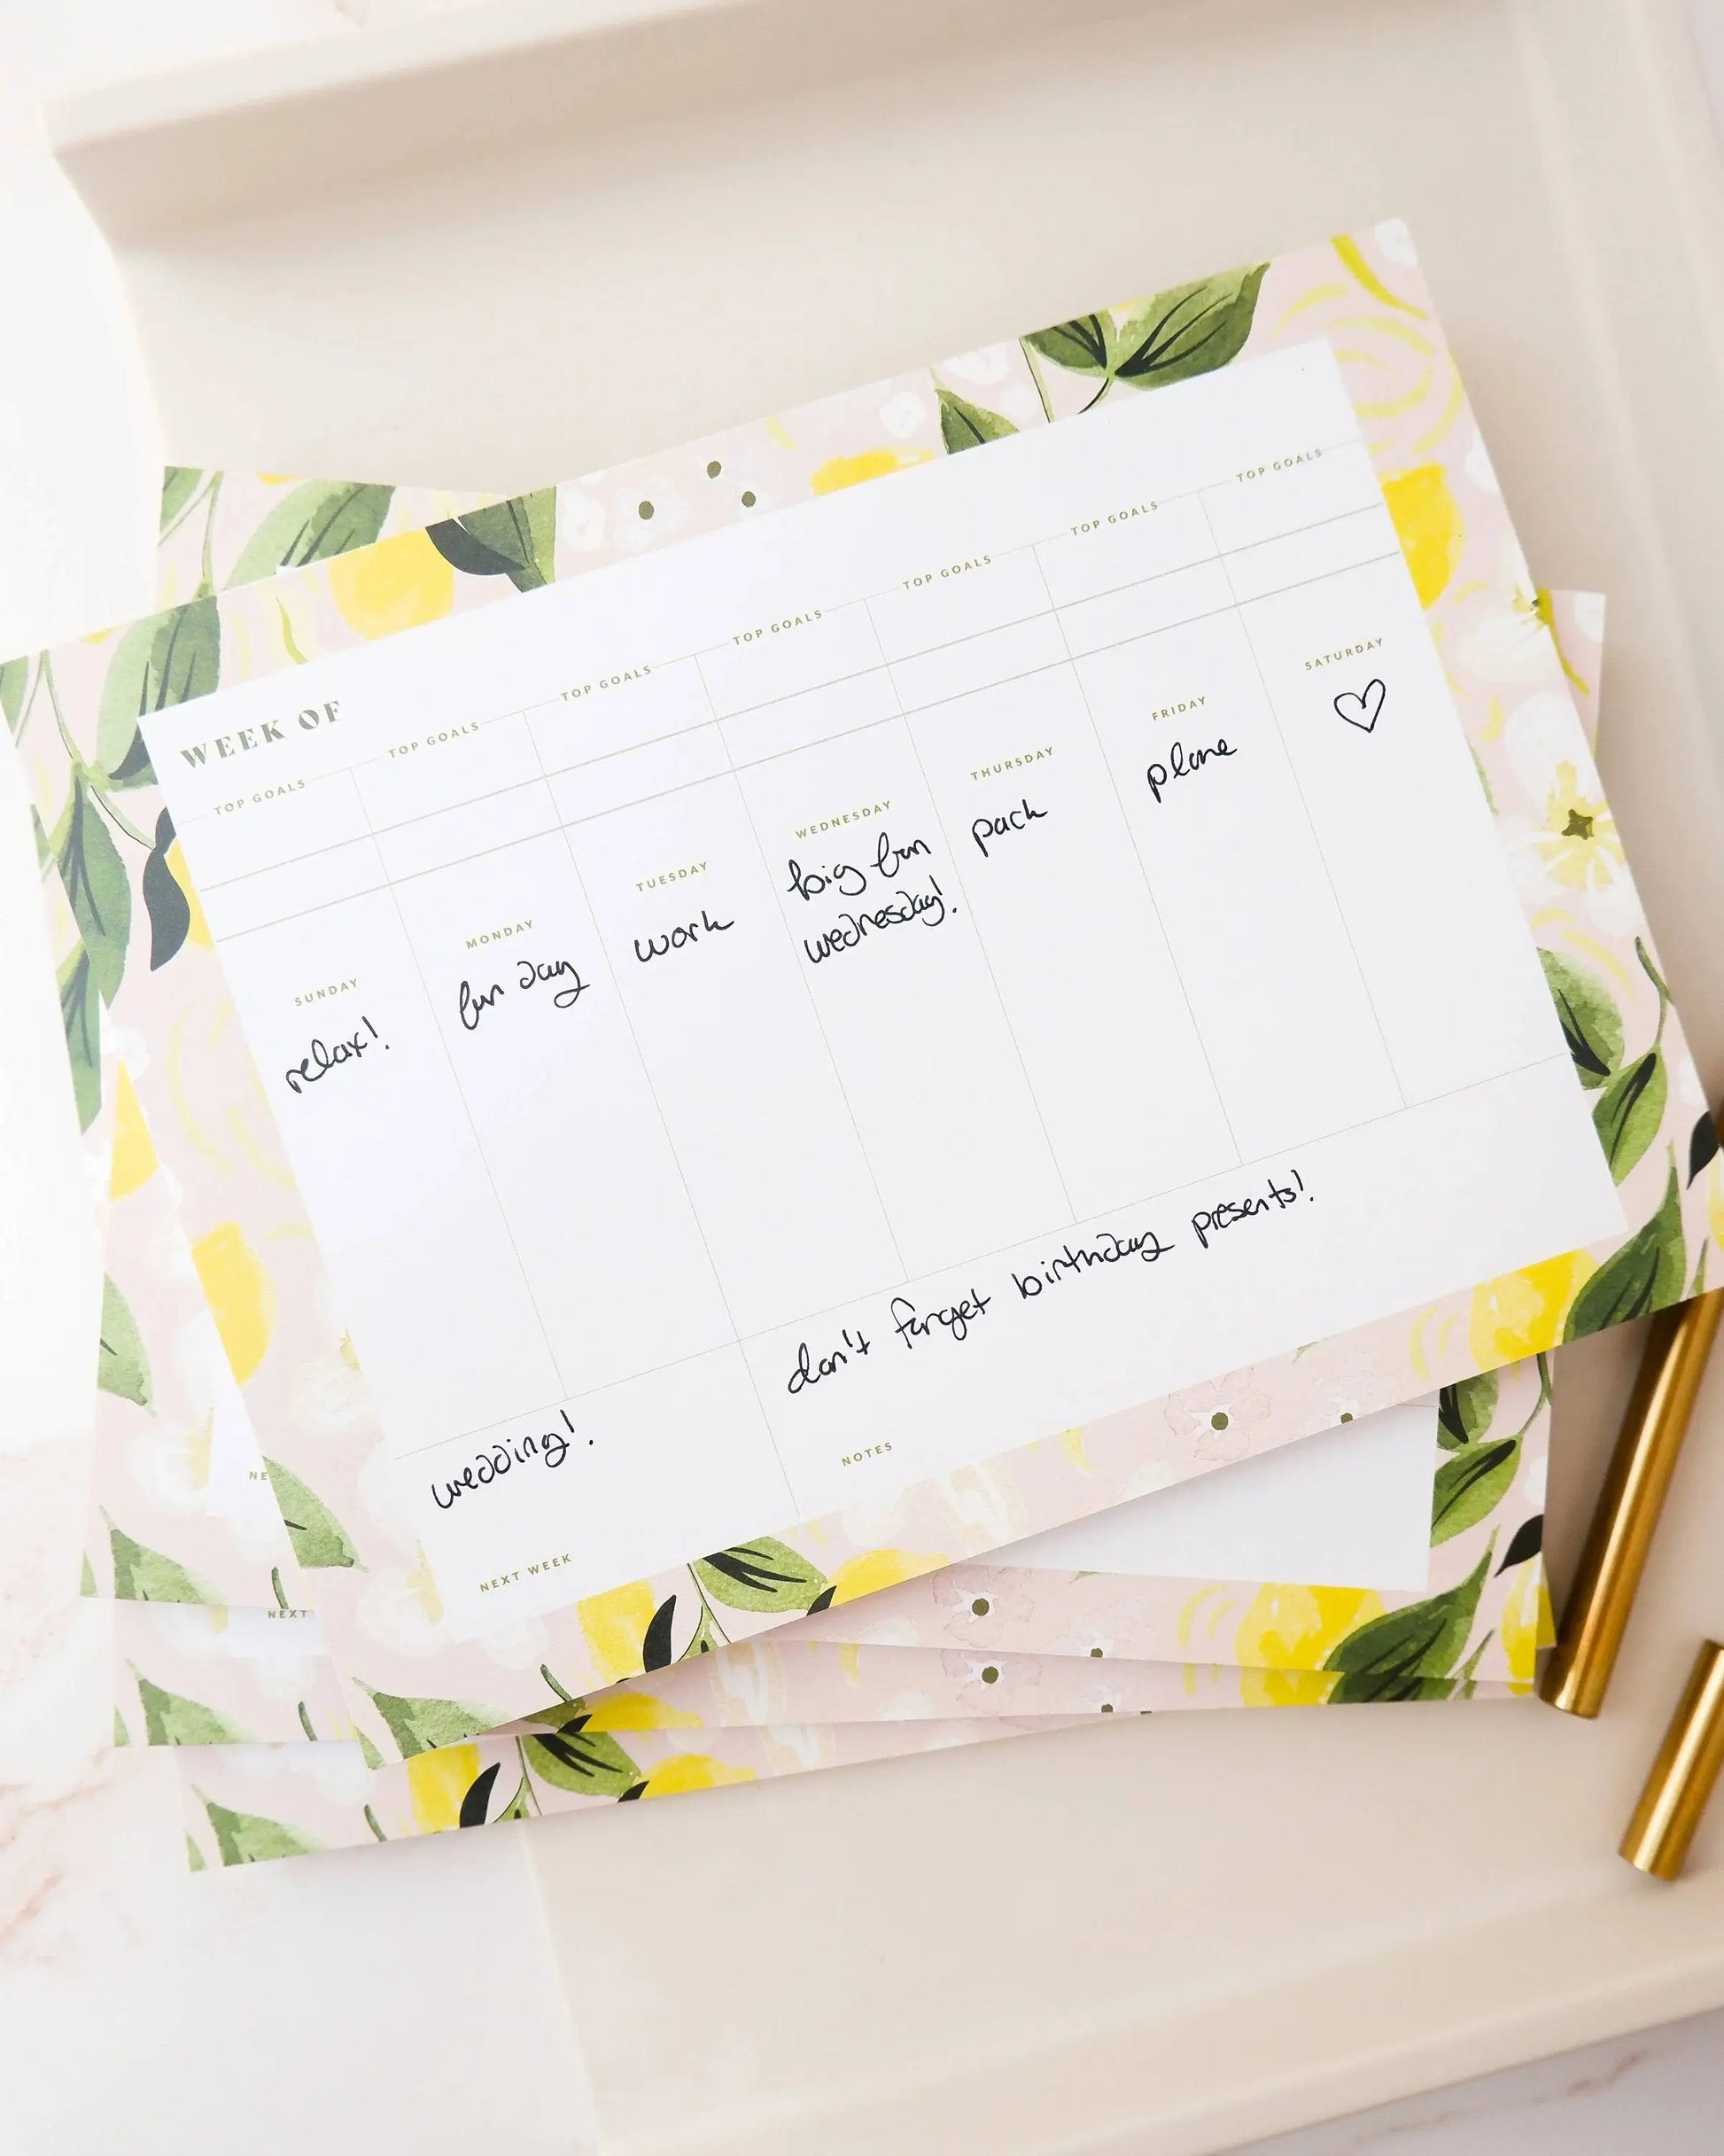 WEEK OF
TOP GOALS
TOP GOALS
TOP GOALS
TOP GOALS
TOP GOALS
TOP GOALS
TOP GOALS
SUNDAY
relax!
MONDAY
fun day
TUESDAY
work
WEDNESDAY
big fun
wednesday!
THURSDAY
pack
FRIDAY
plane
SATURDAY
wedding!
NEXT WEEK
don't forget birthday presents!
NOTES
NE
NEXT